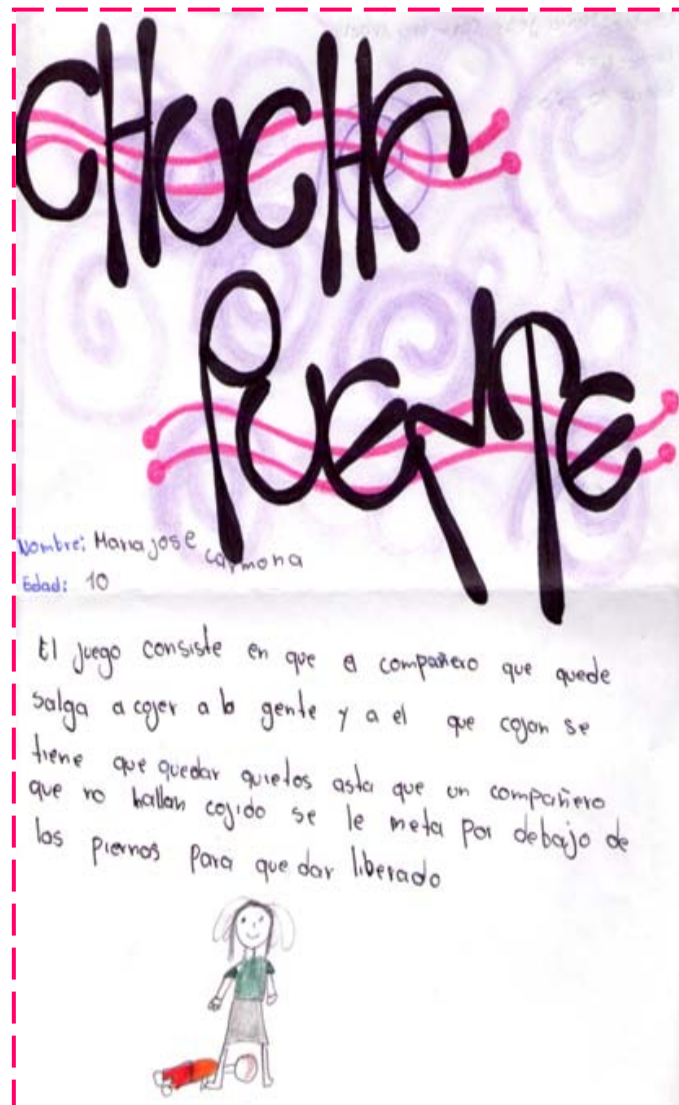 CHUCHA
PUENTE
Nombre: Maria jose Carmona
Edad: 10
El juego consiste en que el compañero que quede
salga a cojer a la gente y a el que cojan se
tiene que quedar quietos asta que un compañero
que no hallan cojido se le meta por debajo de
las piernas para que dar liberado